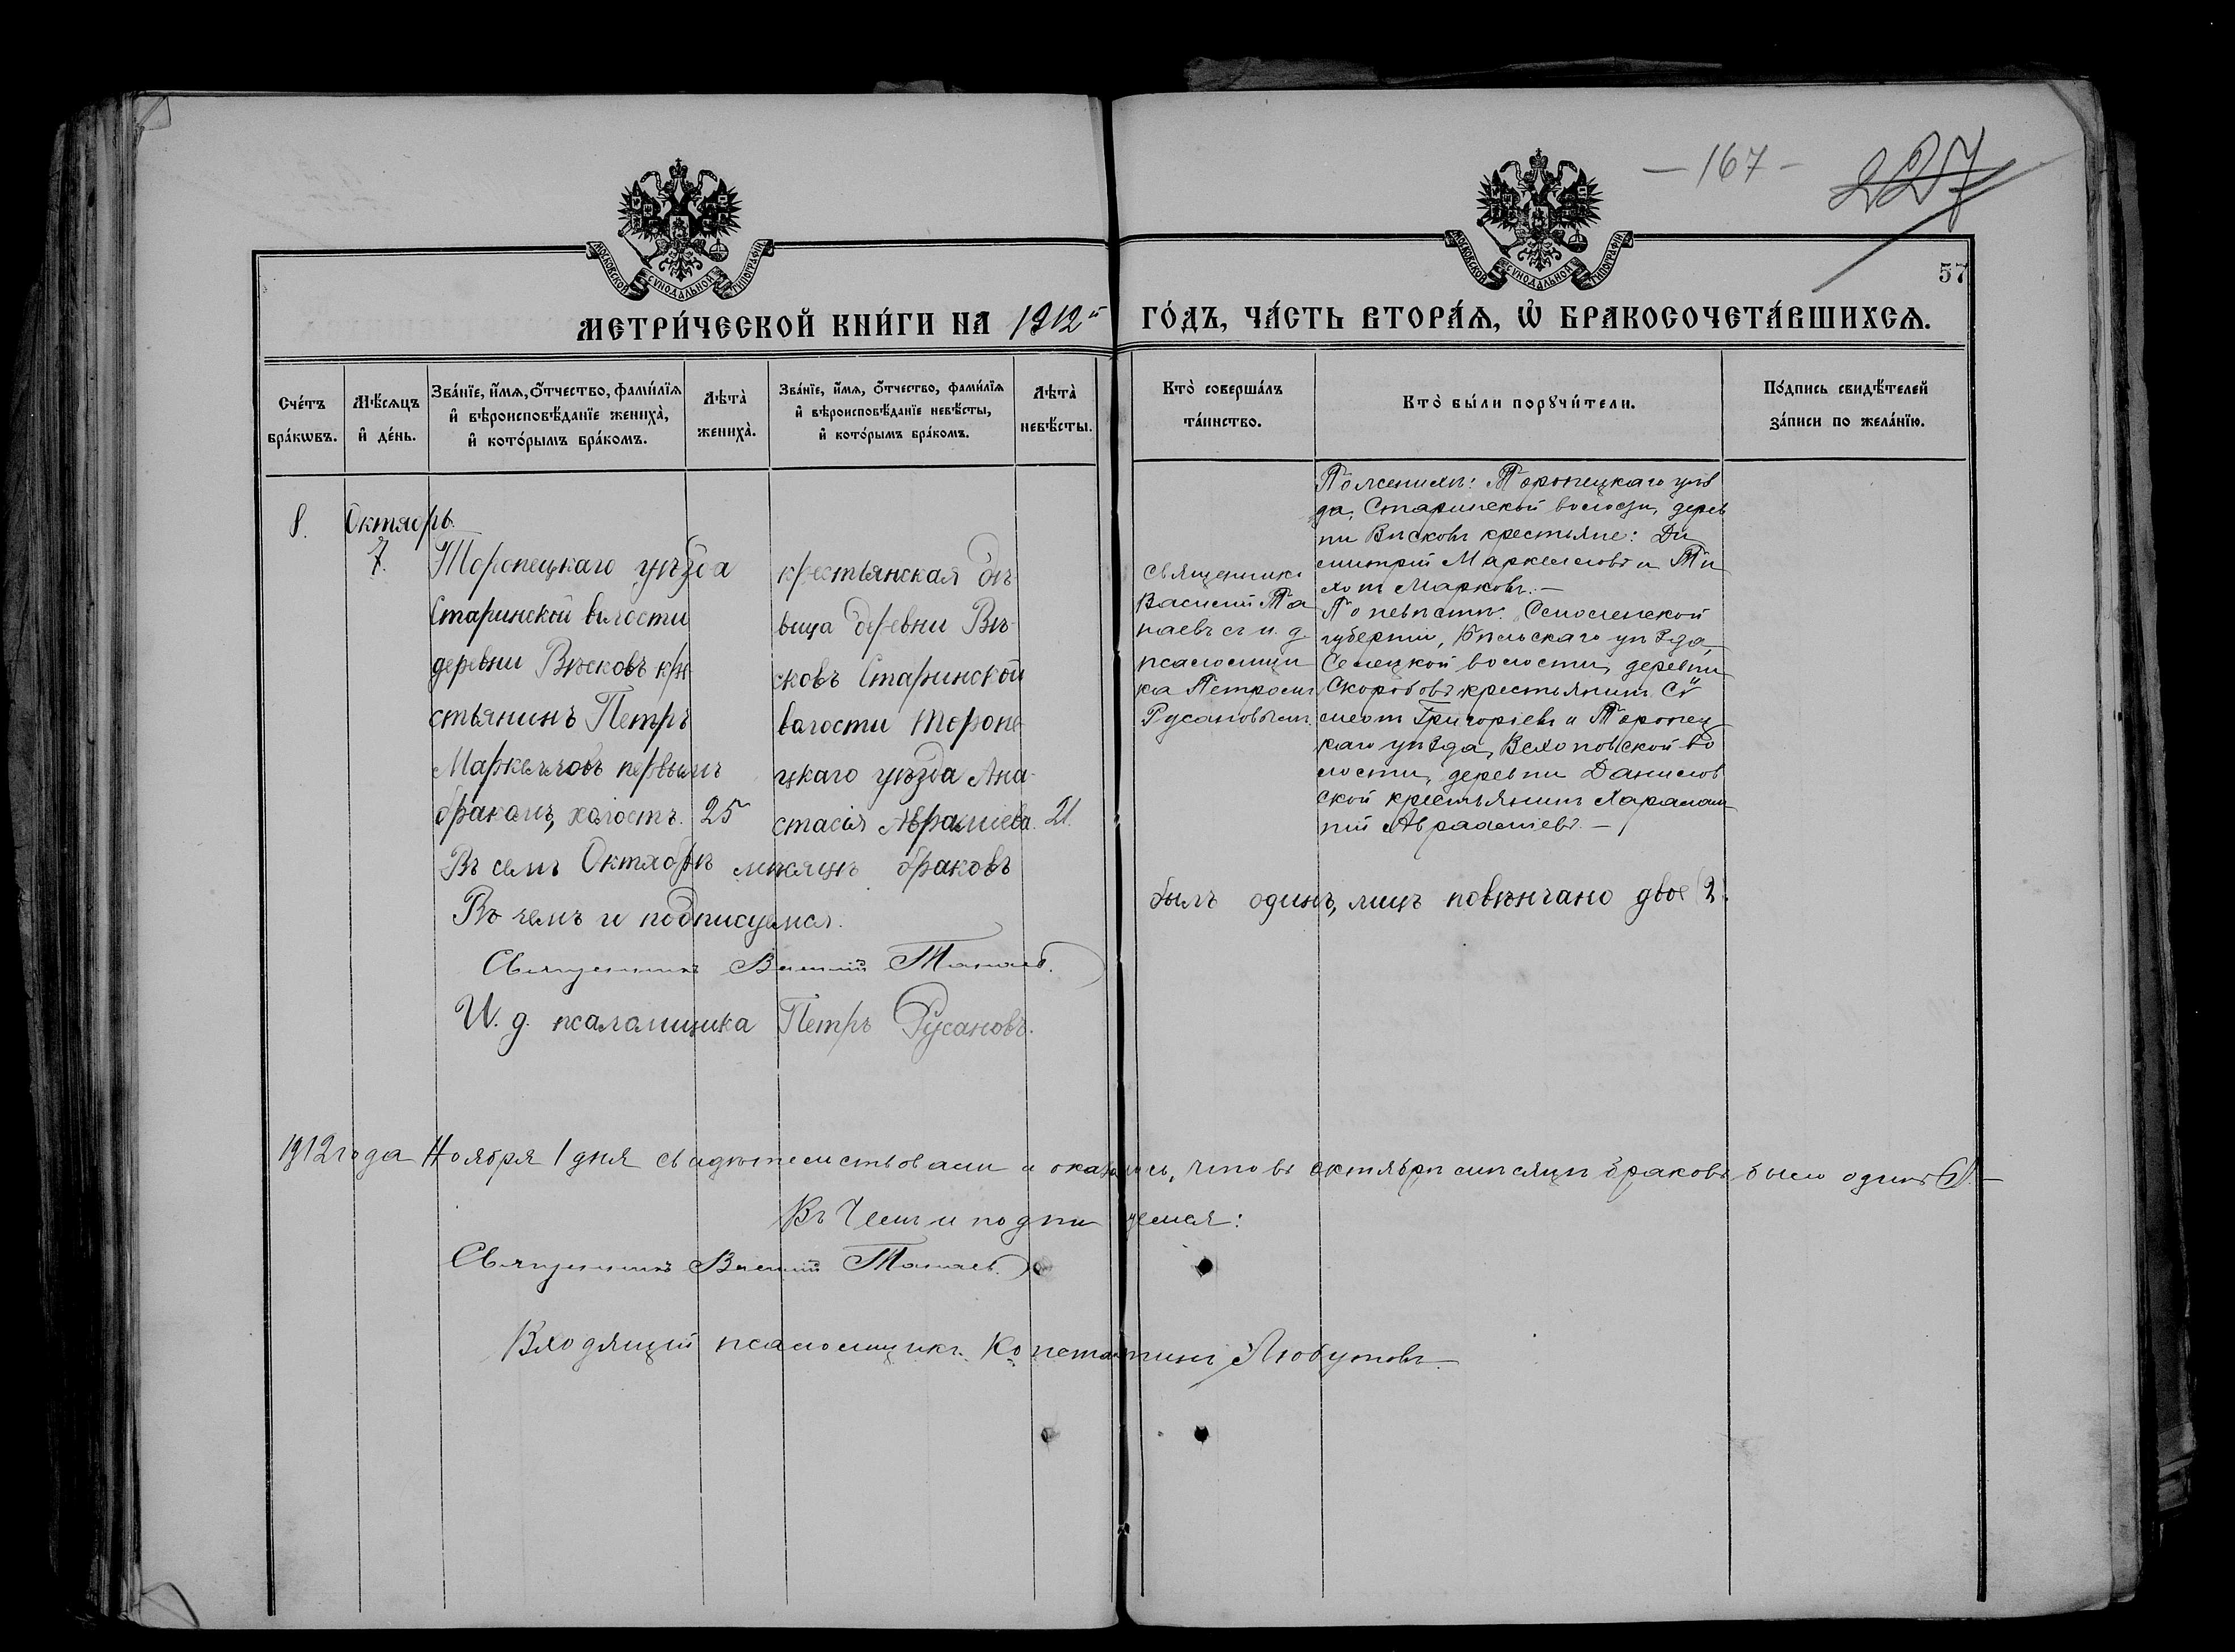 — 167 —
227
57
МОСКОВСКОЙ СѴНОДАЛЬНОЙ ТИПОГРАФІИ
МОСКОВСКОЙ СѴНОДАЛЬНОЙ ТИПОГРАФІИ
МЕТРИ́ЧЕСКОЙ КНИ́ГИ НА 1912й ГО́ДЪ, ЧА́СТЬ ВТОРА́Ѧ, Ѽ БРАКОСОЧЕТА́ВШИХСѦ.
Сче́тъ
бра́кѡвъ.
Мѣ́сѧцъ
и҆ де́нь.
Зва́нїе, и҆́мѧ, ѻ҆́тчество, фами́лїѧ
и҆ вѣроисповѣ́данїе жениха̀,
и҆ кото́рымъ бра́комъ.
Лѣта̀
жениха̀.
Зва́нїе, и҆́мѧ, ѻ҆́тчество, фами́лїѧ
и҆ вѣроисповѣ́данїе невѣ́сты,
и҆ кото́рымъ бра́комъ.
Лѣта̀
невѣ́сты.
Кто̀ соверша́лъ
та́инство.
Кто̀ бы́ли порꙋчи́тели.
По́дпись свидѣ́телей
за́писи по жела́нїю.
8.
Октябрь
7.
Торопецкаго уѣзда
Старинской волости
деревни Вѣсковъ кре-
стьянинъ Петръ
Маркелловъ первымъ
бракомъ, холостъ.
25
крестьянская дѣ-
вица деревни Вѣ-
сковъ Старинской
волости Торопе-
цкаго уѣзда Ана-
стасія Авраміева.
21.
Священникъ
Василій Та
наевъ съ и. д.
псаломщи
ка Петромъ
Русановымъ.
По женихѣ: Торопецкаго уѣз
да, Старинской волости, дерев
ни Вѣсковъ крестьяне: Ди
митрій Маркелловъ и Ти
хонъ Марковъ. —
По невѣстѣ: Смоленской
губерніи, Бѣльскаго уѣзда,
Селецкой волости, деревни
Скоробовъ крестьянинъ Си
меонъ Григорьевъ и Торопец
каго уѣзда, Волоковской во
лости, деревни Данилов
ской крестьянинъ Харалам
пій Авраміевъ. —
Въ семъ Октябрѣ мѣсяцѣ браковъ былъ одинъ, лицъ повѣнчано двое (2).
Въ чемъ и подписуемся.
Священникъ Василій Танаевъ.
И. д. псаломщика Петръ Русановъ.
1912 года Ноября 1 дня свидѣтельствовали и оказалось, что въ октябрѣ мѣсяцѣ браковъ было одинъ (1). —
Въ чемъ и подписуемся:
Священникъ Василій Танаевъ.
Входящій псаломщикъ Константинъ Любутовъ.